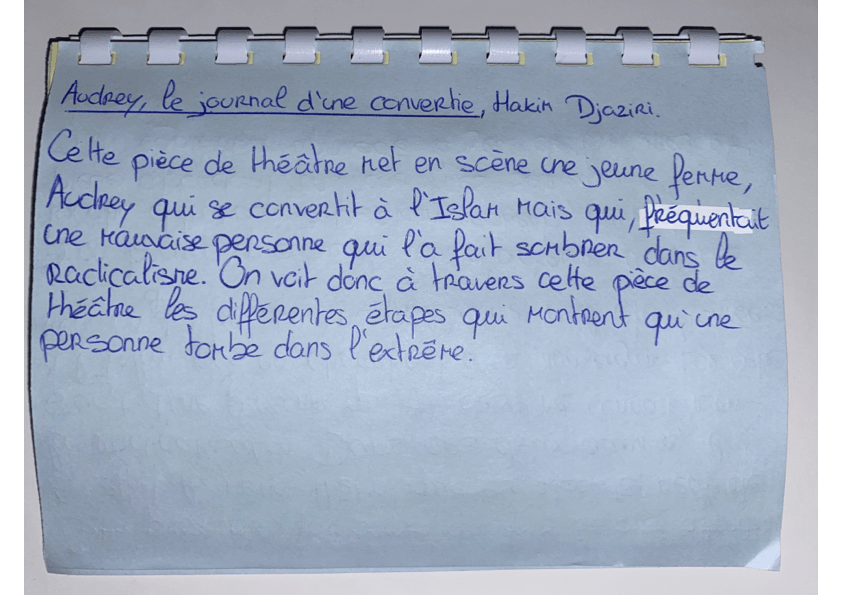 Audrey, le journal d'une convertie, Hakim Djaziri.
Cette pièce de théâtre met en scène une jeune femme,
Audrey qui se convertit à l'Islam mais qui, fréquentait
une mauvaise personne qui l'a fait sombrer dans le
radicalisme. On voit donc à travers cette pièce de
théâtre les différentes étapes qui montrent qu'une
personne tombe dans l'extrême.